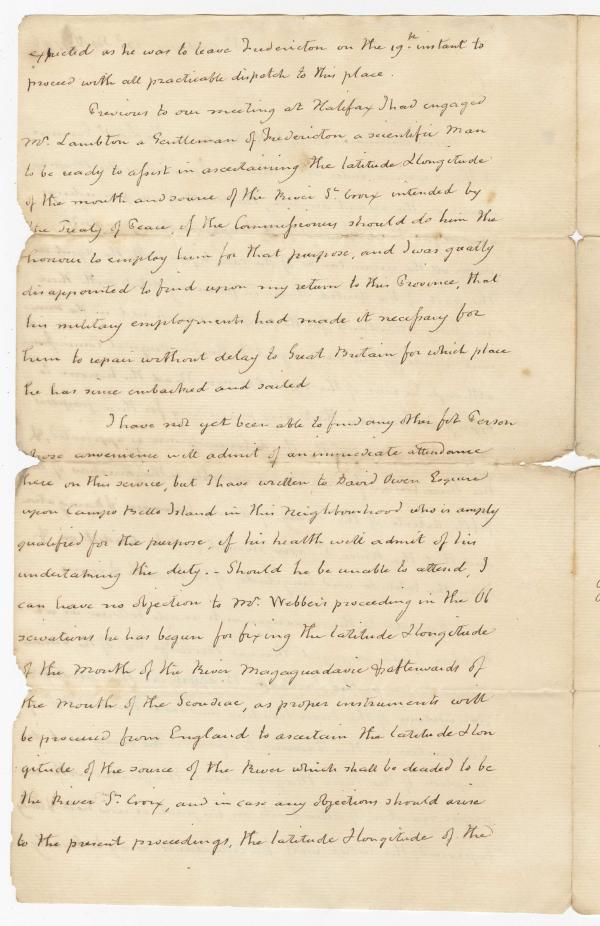 expected as he was to leave Fredericton on the 19th. instant to
proceed with all practicable dispatch to this place.
Previous to our meeting at Halifax I had engaged
Mr. Lambton a Gentleman of Fredericton a scientific Man
to be ready to assist in ascertaining the latitude & longitude
of the mouth and source of the River St. Croix intended by
the Treaty of Peace, if the Commissioners should do him the
honour to employ him for that purpose, and I was greatly
disappointed to find upon my return to this Province, that
his military employments had made it necessary for
him to repair without delay to Great Britain for which place
he has since embarked and sailed
I have not yet been able to find any other fit Person
whose convenience will admit of an immediate attendance
here on this service, but I have written to David Owen Esquire
upon Campo Bello Island in this Neighbourhood who is amply
qualified for the purpose, if his health will admit of his
undertaking the duty. - Should he be unable to attend, I
can have no objection to Mr. Webber's proceeding in the Ob
servations he has begun for fixing the latitude & longitude
of the Mouth of the River Magaguadavic & afterwards of
the Mouth of the Scoudiac, as proper instruments will
be procured from England to ascertain the latitude & lon
gitude of the source of the River which shall be decided to be
the River St. Croix, and in case any objections should arise
to the present proceedings, the latitude & longitude of the